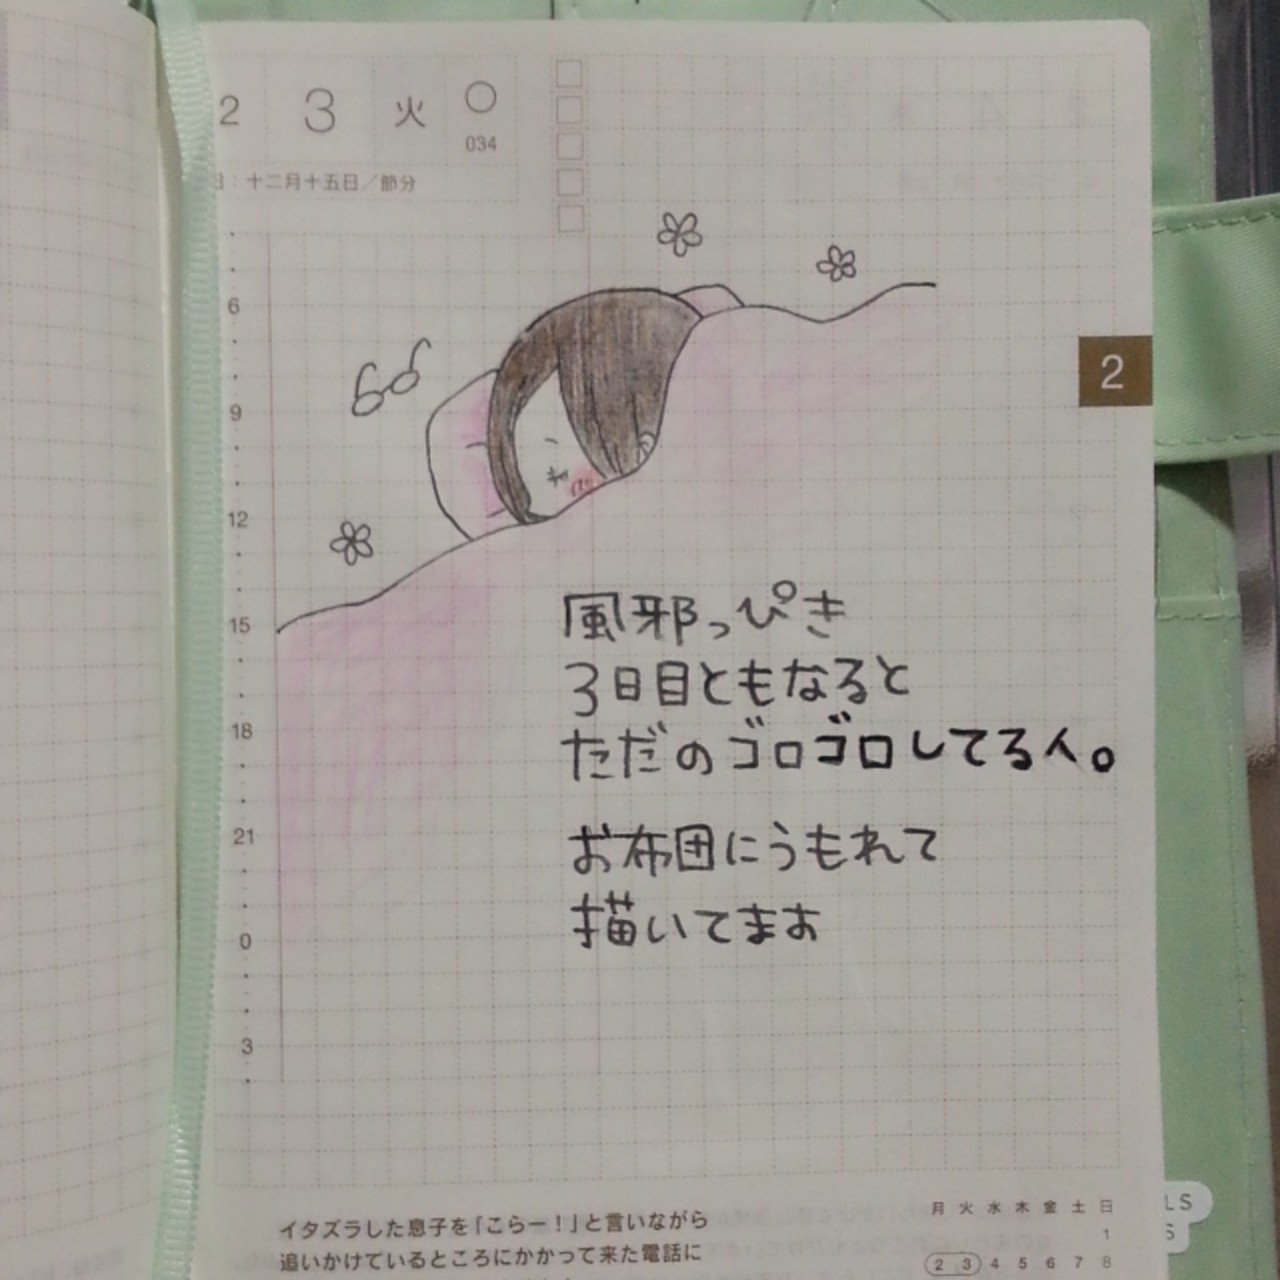 2 3 火
034
日：十二月十五日／節分
6
9
12
15
18
21
0
3
2
風邪っぴき
3日目ともなると
ただのゴロゴロしてる人。
お布団にうもれて
描いてまお
イタズラした息子を「こらー！」と言いながら
追いかけているところにかかって来た電話に
月 火 水 木 金 土 日
1
2 3 4 5 6 7 8
LS
S